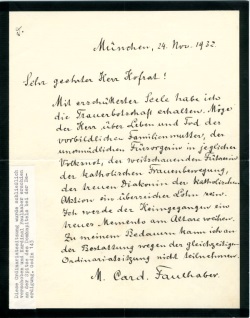 München, 24. Nov. 1932
Sehr geehrter Herr Hofrat!
Mit erschütterter Seele habe ich
die Trauerbotschaft erhalten. Möge
der Herr über Leben und Tod der
vorbildlichen Familienmutter, der
unermüdlichen Fürsorgerin in jeglicher
Volksnot, der weitschauenden Führerin
der katholischen Frauenbewegung,
der treuen Diakonin der katholischen
Aktion ein überreicher Lohn sein.
Ich werde der Heimgegangenen ein
treues Memento am Altare weihen.
Zu meinem Bedauern kann ich an
der Bestattung wegen der gleichzeitigen
Ordinariatssitzung nicht teilnehmen.
M. Card. Faulhaber